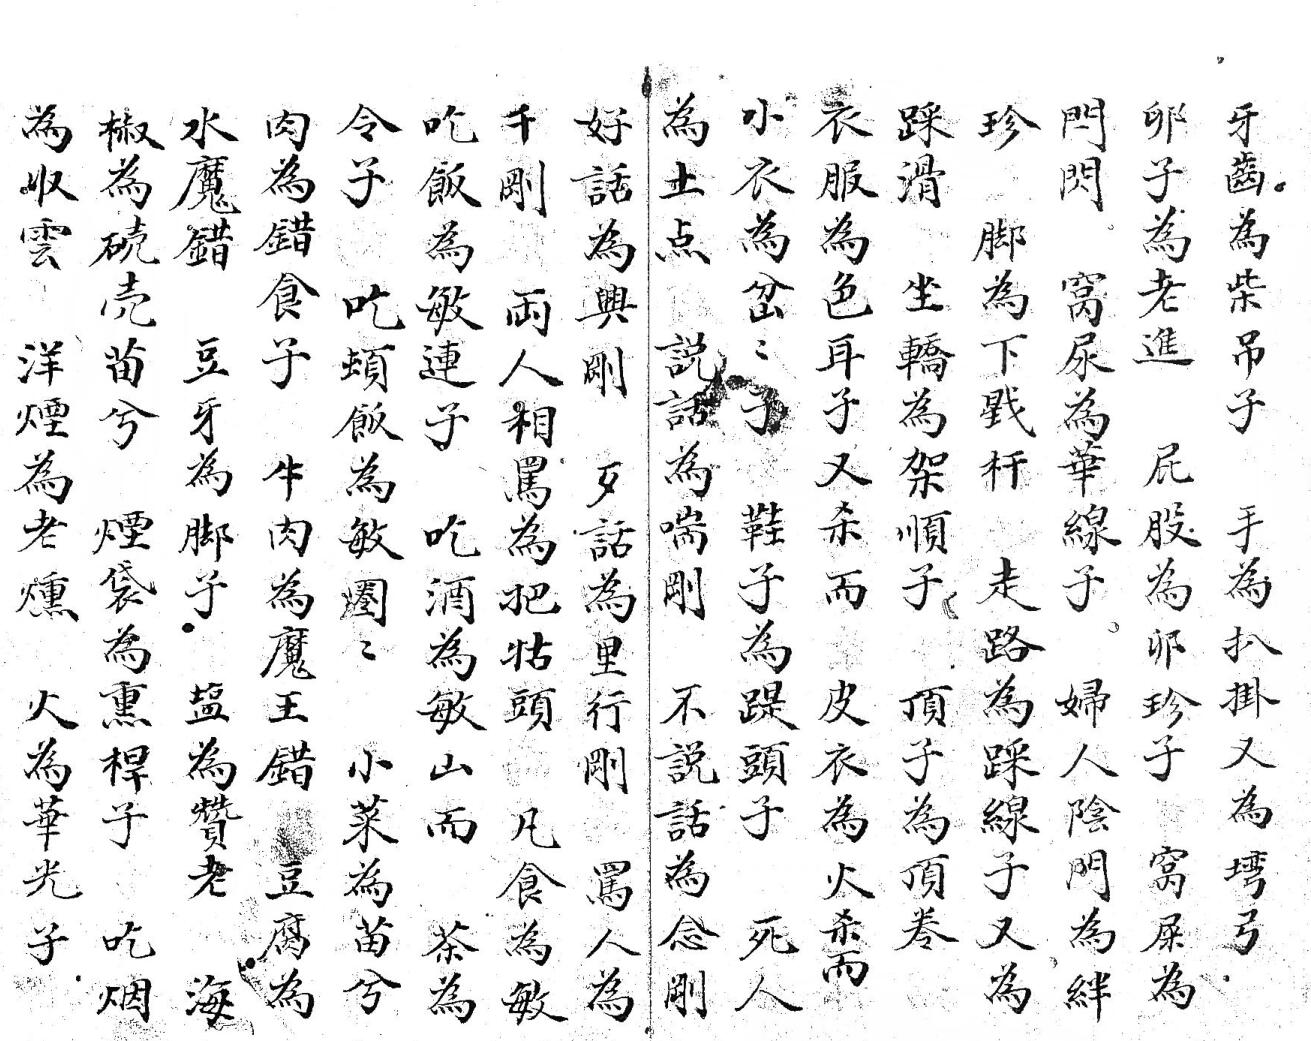 牙齒為柴吊子　手為扒掛又為塆弓
卵子為老進　屁股為卵珍子　窩屎為
閂閃　窩尿為華線子　婦人陰門為絆
珍　脚為下戥杆　走路為踩線子又為
踩滑　坐轎為架順子　頂子為頂卷
衣服為色耳子又杀而　皮衣為火杀而
小衣為岔〻子　鞋子為踶頭子　死人
為土点　説話為喘剛　不説話為念剛
好話為興剛　歹話為里行剛　罵人為
千剛　両人相罵為把牯頭　凡食為敏
吃飯為敏連子　吃酒為敏山而　茶為
令子　吃頓飯為敏圈〻　小菜為苗兮
肉為錯食子　牛肉為魔王錯　豆腐為
水魔錯　豆牙為脚子　塩為贊老　海
椒為磽壳苗兮　煙袋為熏桿子　吃烟
為収雲　洋煙為老燻　火為華光子